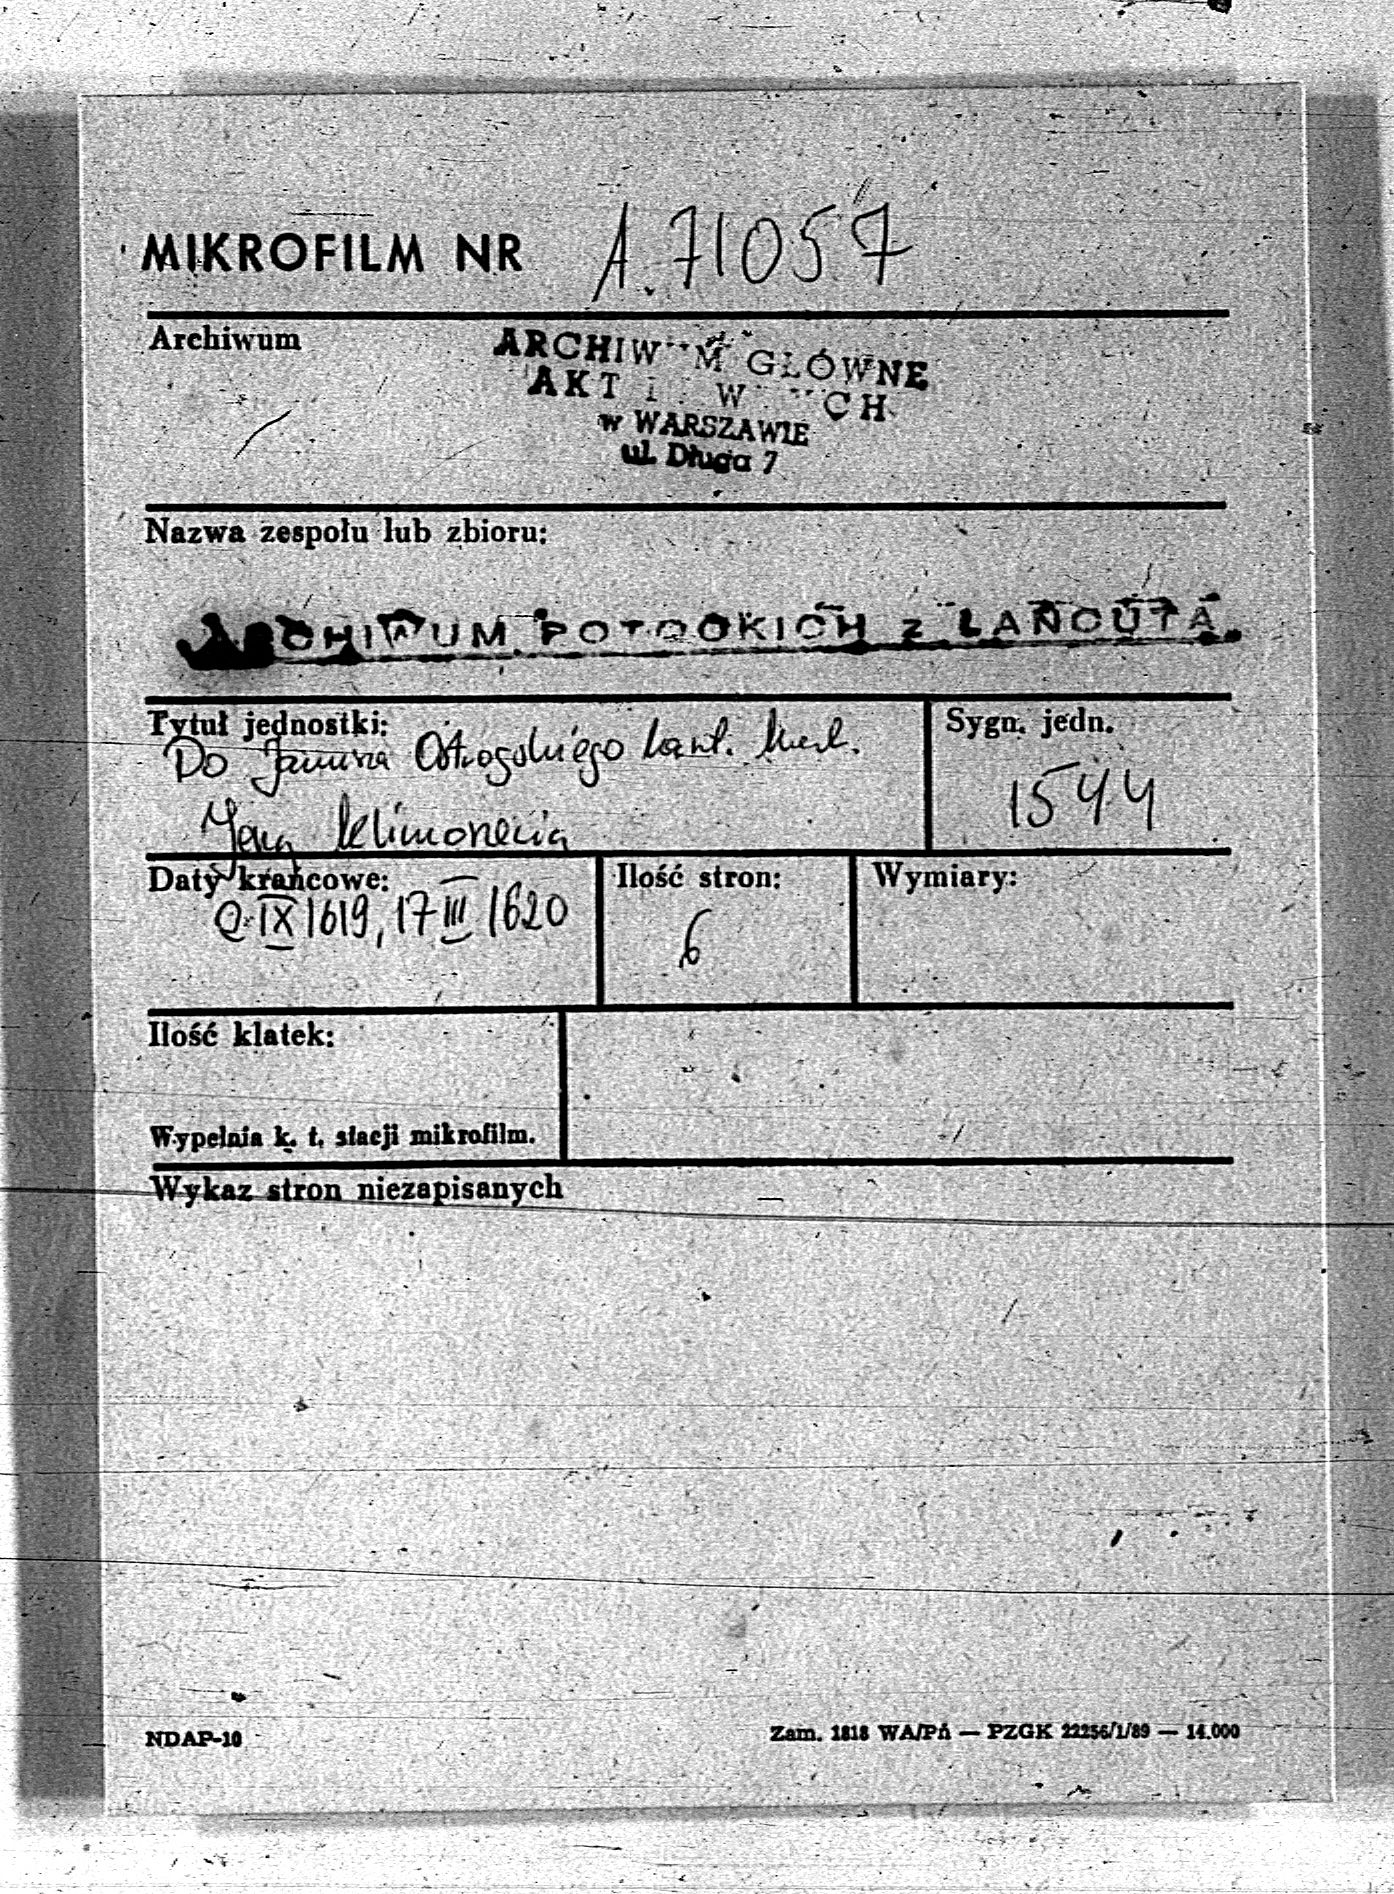 MIKROFILM NR A. 71057
Archiwum
ARCHIW M GŁÓWNE
AKT W CH
w WARSZAWIE
ul. Długa 7
Nazwa zespołu lub zbioru:
ARCHIWUM POTOCKICH z ŁAŃCUTA
Tytuł jednostki:
Do Janusza Ostrogskiego kaszt.
Sygn. jedn.
1544
Daty krańcowe:
IX 1619, 17 III 1620
Ilość stron:
6
Wymiary:
Ilość klatek:
Wypełnia k. t. stacji mikrofilm.
Wykaz stron niezapisanych
NDAP-10
Zam. 1818 WA/Pń — PZGK 22256/1/89 — 14.000